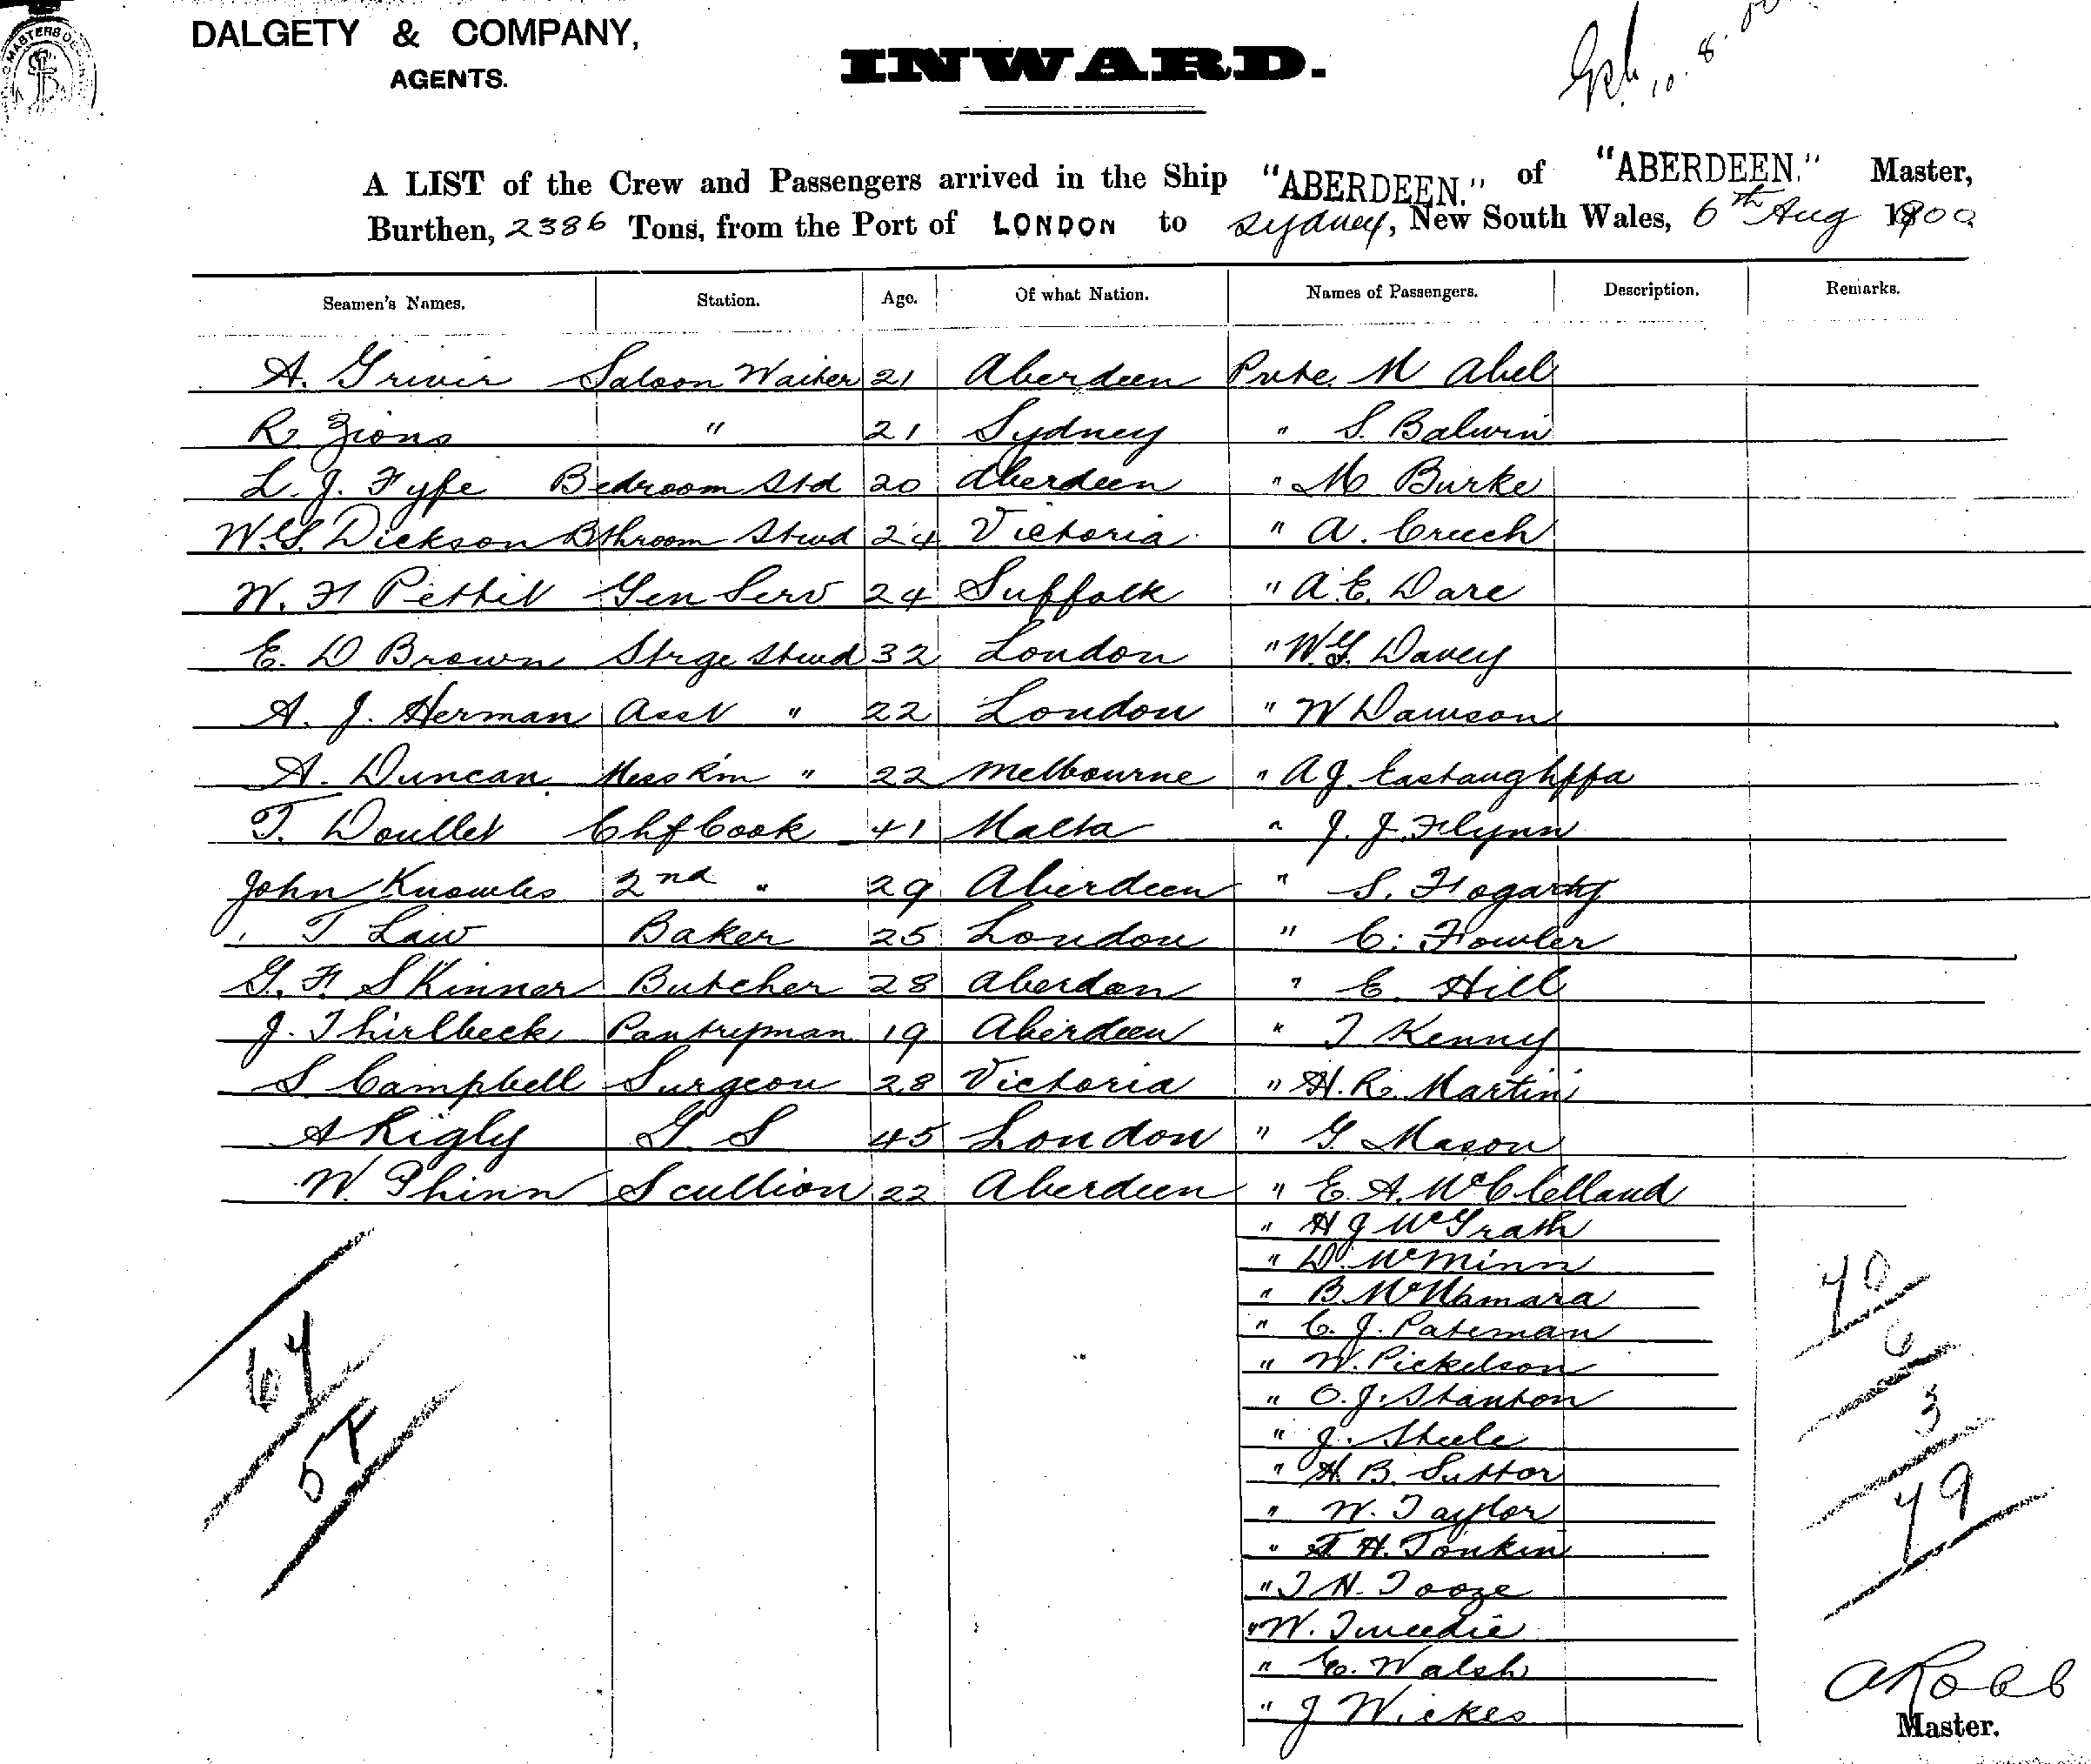 DALGETY & COMPANY,
AGENTS.
INWARD.
10.8.00
A LIST of the Crew and Passengers arrived in the Ship "ABERDEEN." of "ABERDEEN." Master,
Burthen, 2386 Tons, from the Port of LONDON to Sydney, New South Wales, 6th Aug 1900
Seamen's Names. Station. Age. Of what Nation. Names of Passengers. Description. Remarks.
A. Saloon Waiter 21 Aberdeen Pvte. M Abel
R. Zions " 21 Sydney " S. Balwin
L. J. Fyfe Bedroom Std 20 Aberdeen " M Burke
W.G. Dickson Bthroom Stwd 24 Victoria " A. Creech
W. H Pettit Gen Serv 24 Suffolk " A.E. Dare
E. D Brown Strge Stwd 32 London " W.G. Davey
A. J. Herman Asst " 22 London " W Dawson
A. Duncan Mess Rm " 22 Melbourne " A J. Eastaughffa
T. Doullet Chf Cook 41 Malta " J. J. Flynn
John Knowles 2nd " 29 Aberdeen " S. Fogarty
T Law Baker 25 London " C. Fowler
G. F. Skinner Butcher 28 Aberdeen " E. Hill
J. Thirlbeck Pantryman 19 Aberdeen " T Kenny
S. Campbell Surgeon 28 Victoria " H. R. Martin
A Rigly G. S 45 London " G. Mason
W. Phinn Scullion 22 Aberdeen " E. A. McClelland
" H J McGrath
" D. McMinn
" B. McNamara
" C. J. Pateman
" W. Pickelson
" O. J. Stanton
" J. Steele
" H. B. Suttor
" W. Taylor
" T. H. Tonkin
" T H. Tooze
" W. Tweedie
" E. Walsh
" J Wickes
64
57
40
6
3
49
A Robb
Master.